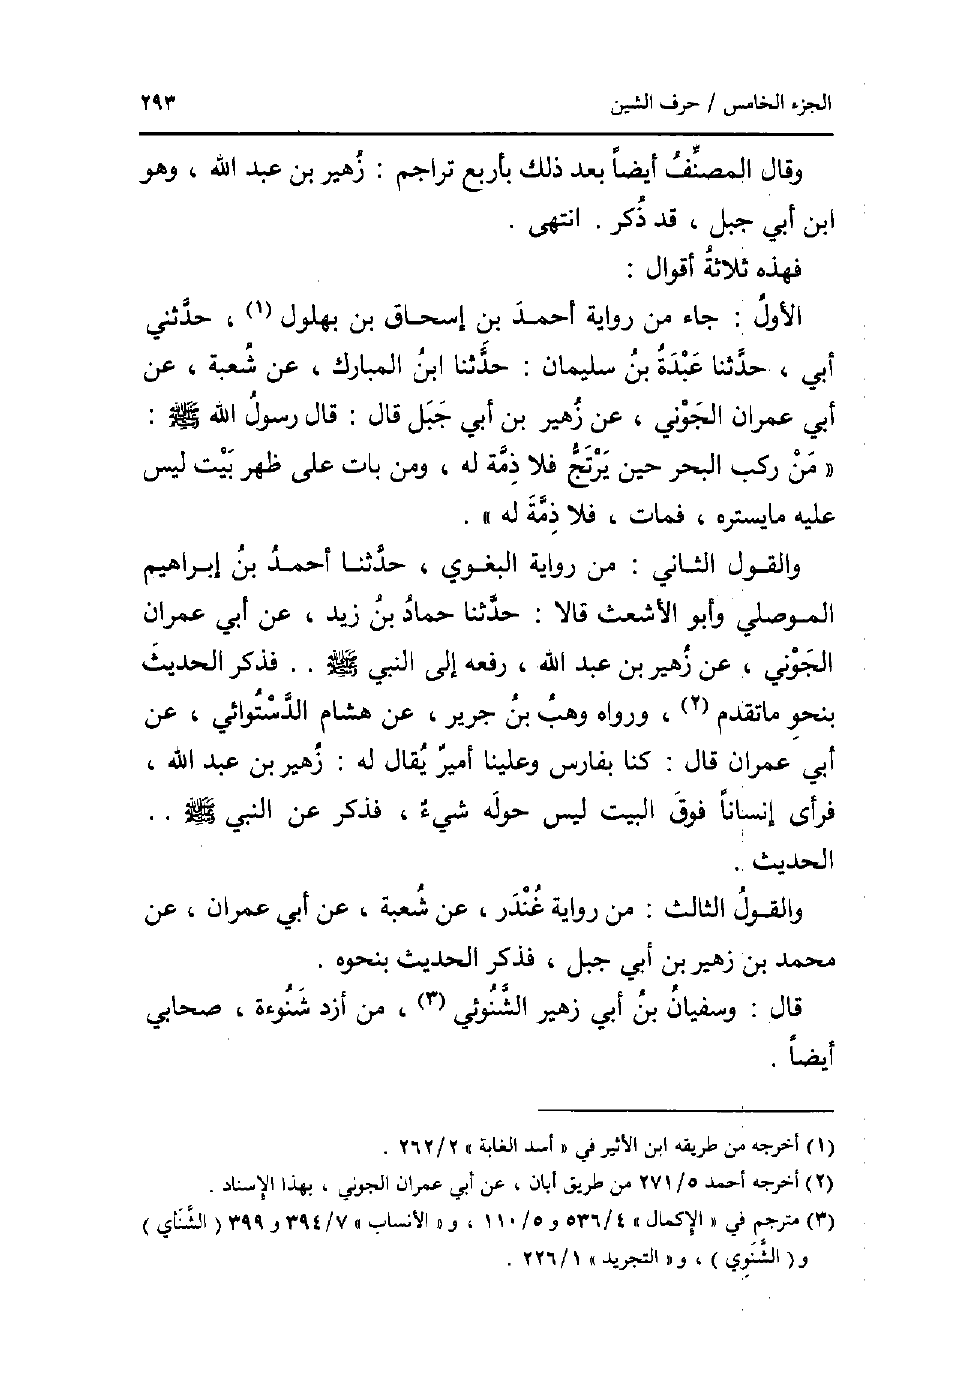 الجزء الخامس / حرف الشين ٢٩٣
وقال المصنِّفُ أيضاً بعد ذلك بأربع تراجم : زُهير بن عبد الله ، وهو
ابن أبي جبل ، قد ذُكر . انتهى .
فهذه ثلاثةُ أقوال :
الأولُ : جاء من رواية أحمـدَ بن إسحـاق بن بهلول (١) ، حدَّثني
أبي ، حدَّثنا عَبْدَةُ بنُ سليمان : حدَّثنا ابنُ المبارك ، عن شُعبة ، عن
أبي عمران الجَوْني ، عن زُهير بن أبي جَبَل قال : قال رسولُ الله ﷺ :
« مَنْ ركب البحر حين يَرْتَجُّ فلا ذِمَّة له ، ومن بات على ظهر بَيْت ليس
عليه مايستره ، فمات ، فلا ذِمَّةَ له » .
والقـول الثـاني : من رواية البغـوي ، حدَّثنـا أحمـدُ بنُ إبـراهيم
المـوصلي وأبو الأشعث قالا : حدَّثنا حمادُ بنُ زيد ، عن أبي عمران
الجَوْني ، عن زُهير بن عبد الله ، رفعه إلى النبي ﷺ . . فذكر الحديثَ
بنحوِ ماتقدم (٢) ، ورواه وهبُ بنُ جرير ، عن هشام الدَّسْتُوائي ، عن
أبي عمران قال : كنا بفارس وعلينا أميرٌ يُقال له : زُهير بن عبد الله ،
فرأى إنساناً فوقَ البيت ليس حولَه شيءٌ ، فذكر عن النبي ﷺ . .
الحديث .
والقـولُ الثالث : من رواية غُنْدَر ، عن شُعبة ، عن أبي عمران ، عن
محمد بن زهير بن أبي جبل ، فذكر الحديث بنحوه .
قال : وسفيانُ بنُ أبي زهير الشَّنُوئي (٣) ، من أزد شَنُوءة ، صحابي
أيضاً .
(١) أخرجه من طريقه ابن الأثير في « أسد الغابة » ٢٦٢/٢ .
(٢) أخرجه أحمد ٢٧١/٥ من طريق أبان ، عن أبي عمران الجوني ، بهذا الإسناد .
(٣) مترجم في « الإكمال » ٥٣٦/٤ و ١١٠/٥ ، و « الأنساب » ٣٩٤/٧ و ٣٩٩ ( الشَّنَاي )
و ( الشَّنَوِي ) ، و « التجريد » ٢٢٦/١ .